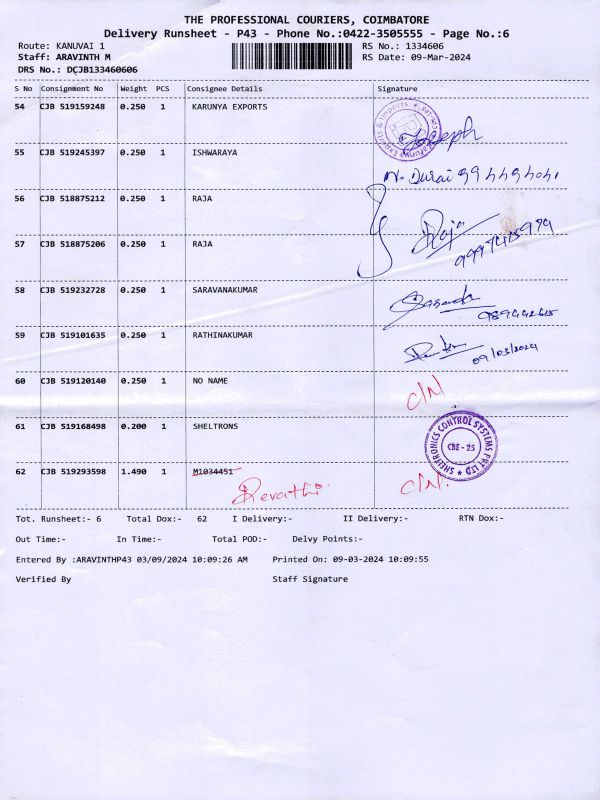 THE PROFESSIONAL COURIERS, COIMBATORE
Delivery Runsheet - P43 - Phone No.:0422-3505555 - Page No.:6
Route: KANUVAI 1 RS No.: 1334606
Staff: ARAVINTH M RS Date: 09-Mar-2024
DRS No.: DCJB133460606
S No Consignment No Weight PCS Consignee Details Signature
54 CJB 519159248 0.250 1 KARUNYA EXPORTS Joseph
55 CJB 519245397 0.250 1 ISHWARAYA
N. Durai
56 CJB 518875212 0.250 1 RAJA
57 CJB 518875206 0.250 1 RAJA Raja
58 CJB 519232728 0.250 1 SARAVANAKUMAR
59 CJB 519101635 0.250 1 RATHINAKUMAR
09/03/2024
60 CJB 519120140 0.250 1 NO NAME C/N
61 CJB 519168498 0.200 1 SHELTRONS
SHELTRONICS CONTROL SYSTEMS PVT LTD
CBE - 25
62 CJB 519293598 1.490 1 M1034451 C/N.
Revathi
Tot. Runsheet:- 6 Total Dox:- 62 I Delivery:- II Delivery:- RTN Dox:-
Out Time:- In Time:- Total POD:- Delvy Points:-
Entered By :ARAVINTHP43 03/09/2024 10:09:26 AM Printed On: 09-03-2024 10:09:55
Verified By Staff Signature